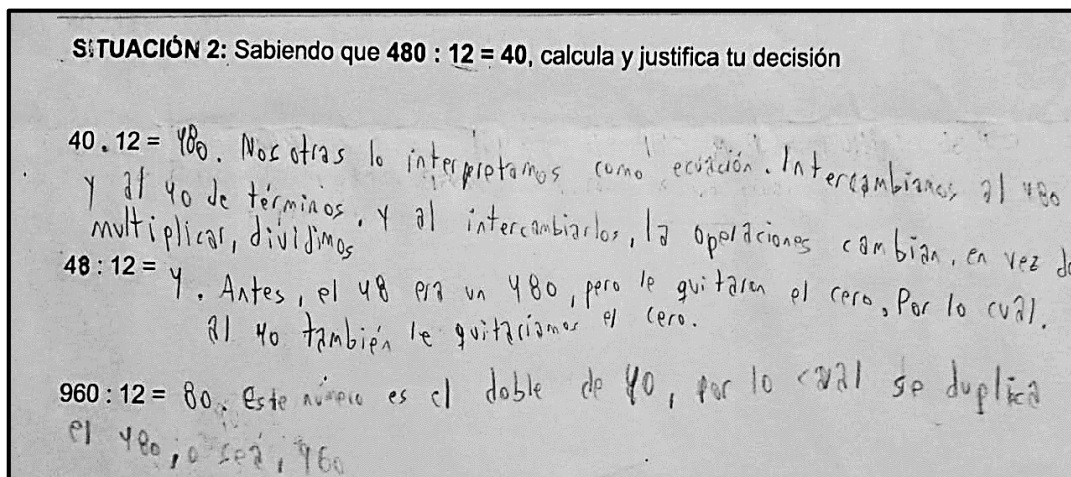 SITUACIÓN 2: Sabiendo que 480 : 12 = 40, calcula y justifica tu decisión
40 . 12 = 480. Nosotras lo interpretamos como ecuación. Intercambiamos al 480
y al 40 de términos. Y al intercambiarlos, la operaciones cambian, en vez de
multiplicar, dividimos
48 : 12 = 4. Antes, el 48 era un 480, pero le quitaron el cero, Por lo cual.
al 40 también le quitaríamos el cero.
960 : 12 = 80. Este número es el doble de 40, por lo cual se duplica
el 480, o sea, 960